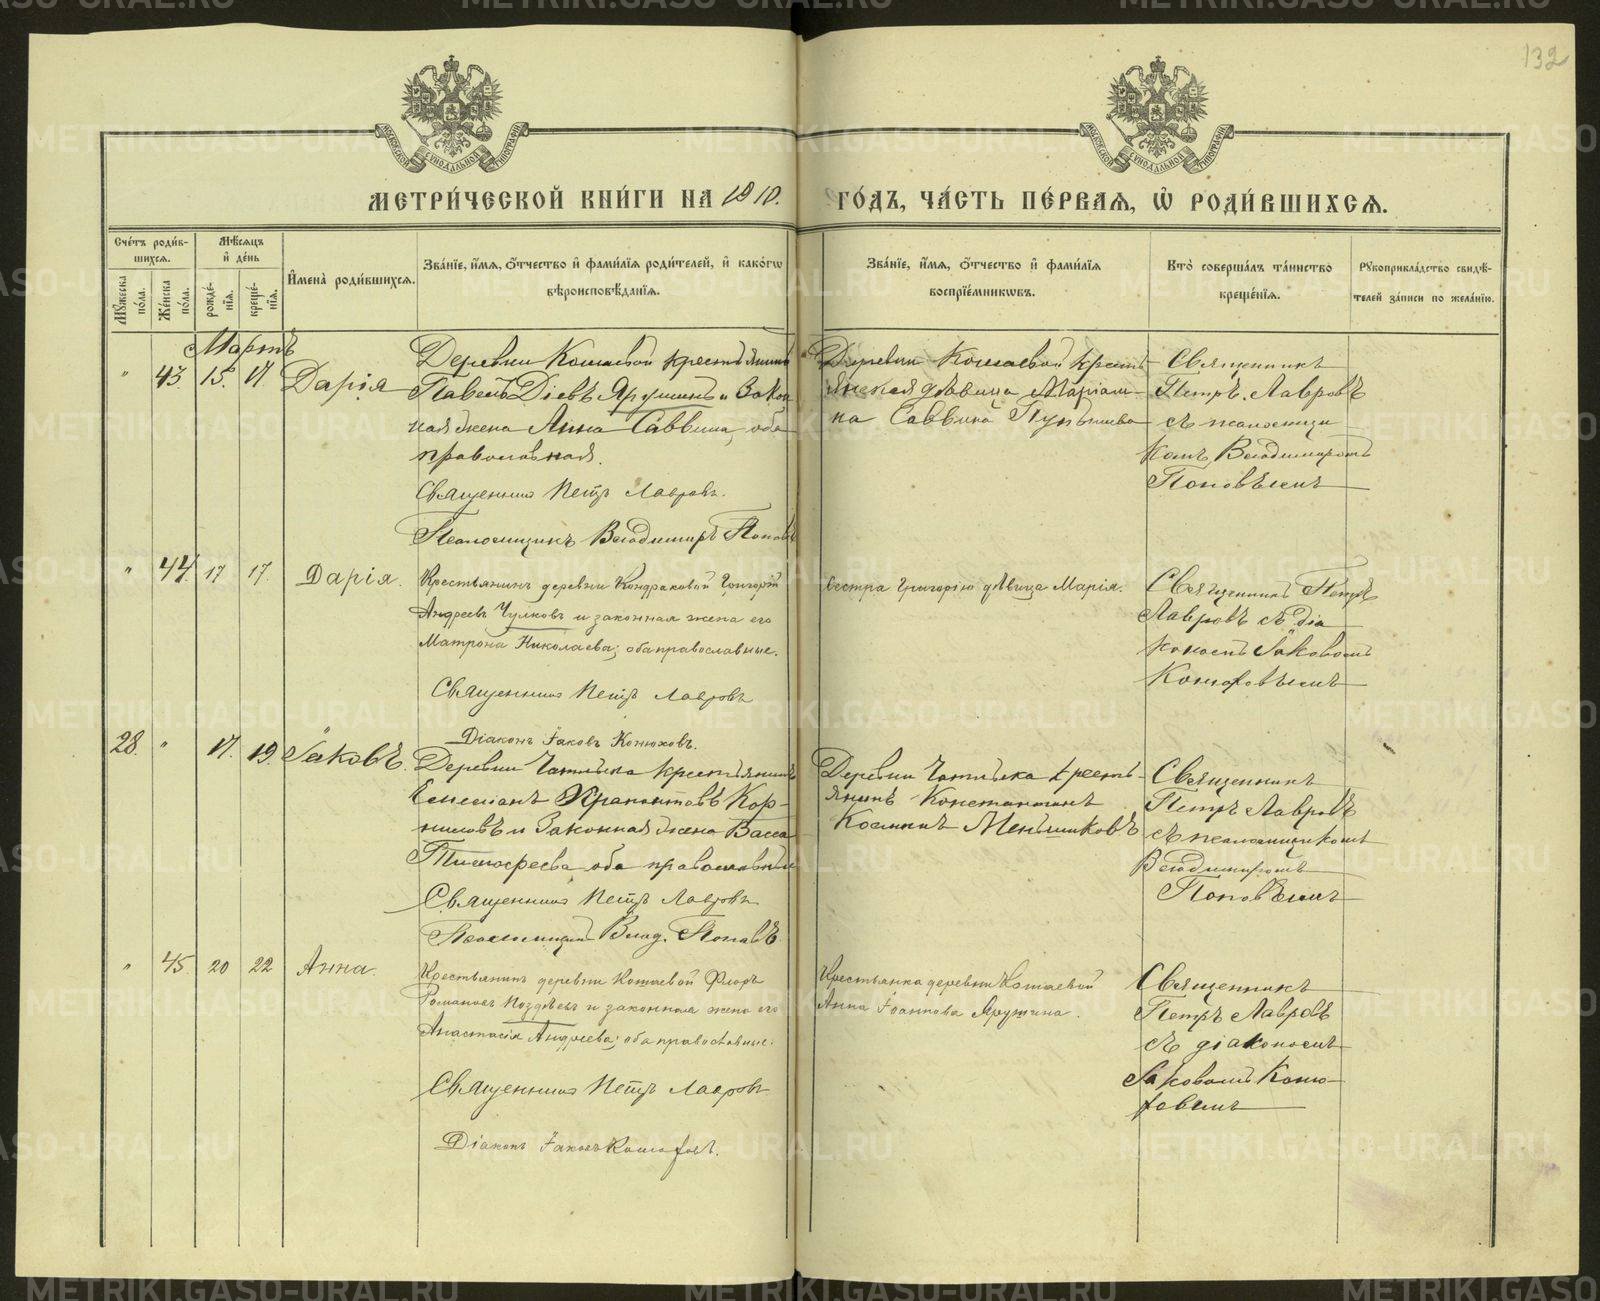 132
МОСКОВСКОЙ СѴНОДАЛЬНОЙ ТИПОГРАФІИ
МОСКОВСКОЙ СѴНОДАЛЬНОЙ ТИПОГРАФІИ
МЕТРИ́ЧЕСКОЙ КНИ́ГИ НА 1910. ГО́ДЪ, ЧА́СТЬ ПЕ́РВАѦ, Ѡ҆ РОДИ́ВШИХСѦ.
Сче́тъ роди́в-
шихсѧ.
Мꙋ́жеска по́ла.
Же́нска по́ла.
Мѣ́сѧцъ
и҆ де́нь
рожде́-
нїѧ.
креще́-
нїѧ.
И҆мена̀ роди́вшихсѧ.
Зва́нїе, и҆́мѧ, ѻ҆́тчество и҆ фами́лїѧ роди́телей, и҆ како́гѡ
вѣроисповѣ́данїѧ.
Зва́нїе, и҆́мѧ, ѻ҆́тчество и҆ фами́лїѧ
воспрїе́мникѡвъ.
Кто̀ соверша́лъ та́инство
креще́нїѧ.
Рꙋкоприкла́дство свидѣ́-
телей за́писи по жела́нїю.
Мартъ
" 43 15. 17 Дарія
Деревни Кошаевой крестьянинъ
Павелъ Діевъ Ярушинъ и Закон
ная жена Анна Саввина, оба
православная.
Священникъ Петръ Лавровъ.
Псаломщикъ Владимиръ Поповъ
Деревни Кошаевой кресть-
янская дѣвица Маріам-
на Саввина
Священникъ
Петръ Лавровъ
съ псаломщи
комъ Владимиромъ
Поповымъ
" 44. 17 17. Дарія.
Крестьянинъ деревни Кондраковой Григорій
Андреевъ Чулковъ и законная жена его
Матрона Николаева; оба православные.
Священникъ Петръ Лавровъ
Діаконъ Іаковъ Конюховъ.
Сестра Григорію дѣвица Марія.
Священникъ Петръ
Лавровъ съ діа
кономъ Іаковомъ
Конюховымъ
28. " 17. 19. Іаковъ.
Деревни Чатлыка крестьянинъ
Емеліанъ Харлантовъ Кор-
ниловъ и Законная жена Васса
Тимофеева оба православные
Священникъ Петръ Лавровъ
Псаломщикъ Влад. Поповъ
Деревни Чатлыка кресть-
янинъ Константинъ
Косминъ Меньшиковъ
Священникъ
Петръ Лавровъ
съ псаломщикомъ
Владимиромъ
Поповымъ
" 45. 20 22 Анна.
Крестьянинъ деревни Кошаевой Флоръ
Романовъ Поздѣевъ и законная жена его
Анастасія Андреева; оба православные.
Священникъ Петръ Лавровъ
Діаконъ Іаковъ Конюховъ.
Крестьянка деревни Кошаевой
Анна Іоаннова Ярушина.
Священникъ
Петръ Лавровъ
съ діакономъ
Іаковомъ Коню-
ховымъ
METRIKI.GASO-URAL.RU